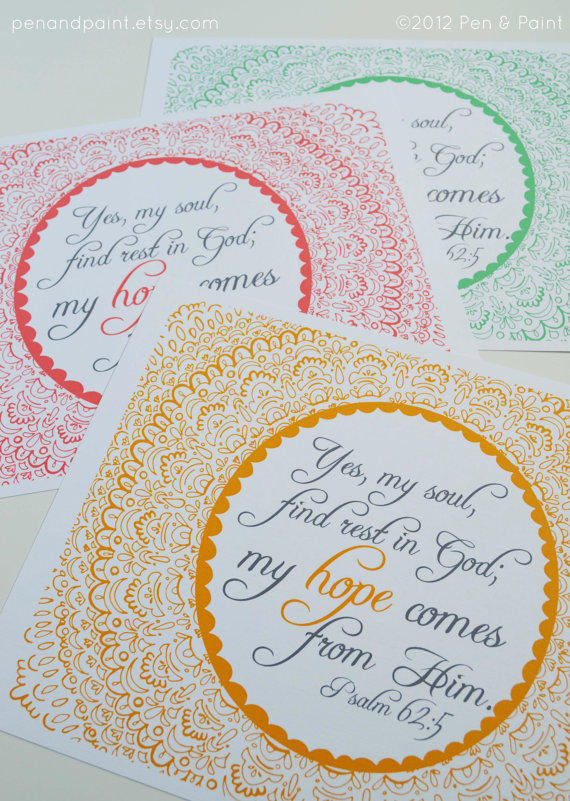 penandpaint.etsy.com
©2012 Pen & Paint
soul,
God;
comes
Him.
62:5
Yes, my soul,
find rest in God;
my comes
Yes, my soul,
find rest in God;
my hope comes
from Him.
Psalm 62:5